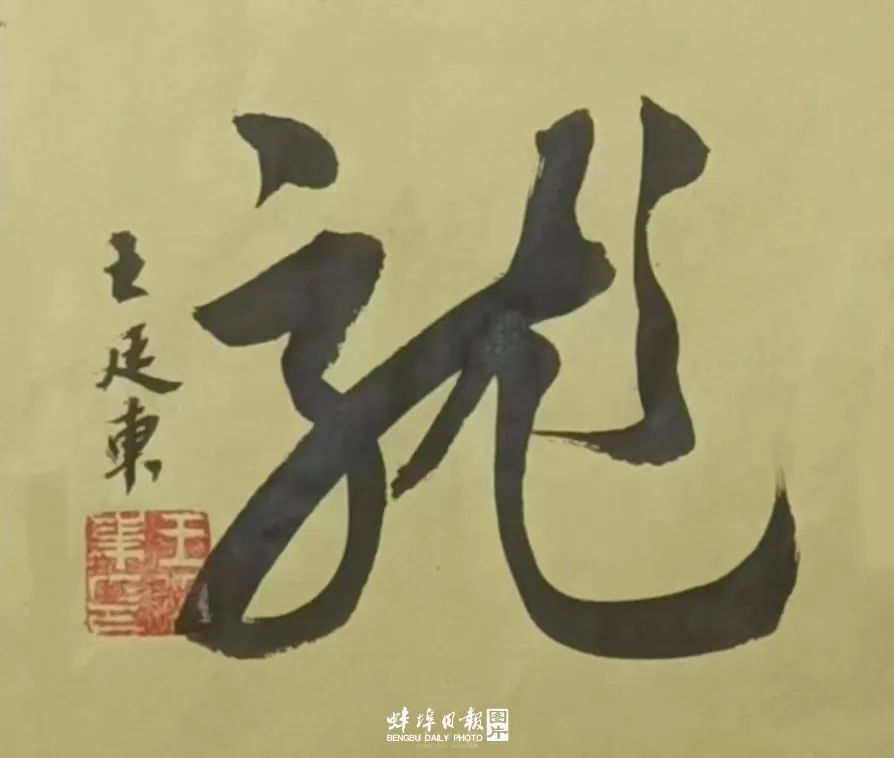 龍
王廷東
蚌埠日報 图片
BENGBU DAILY PHOTO